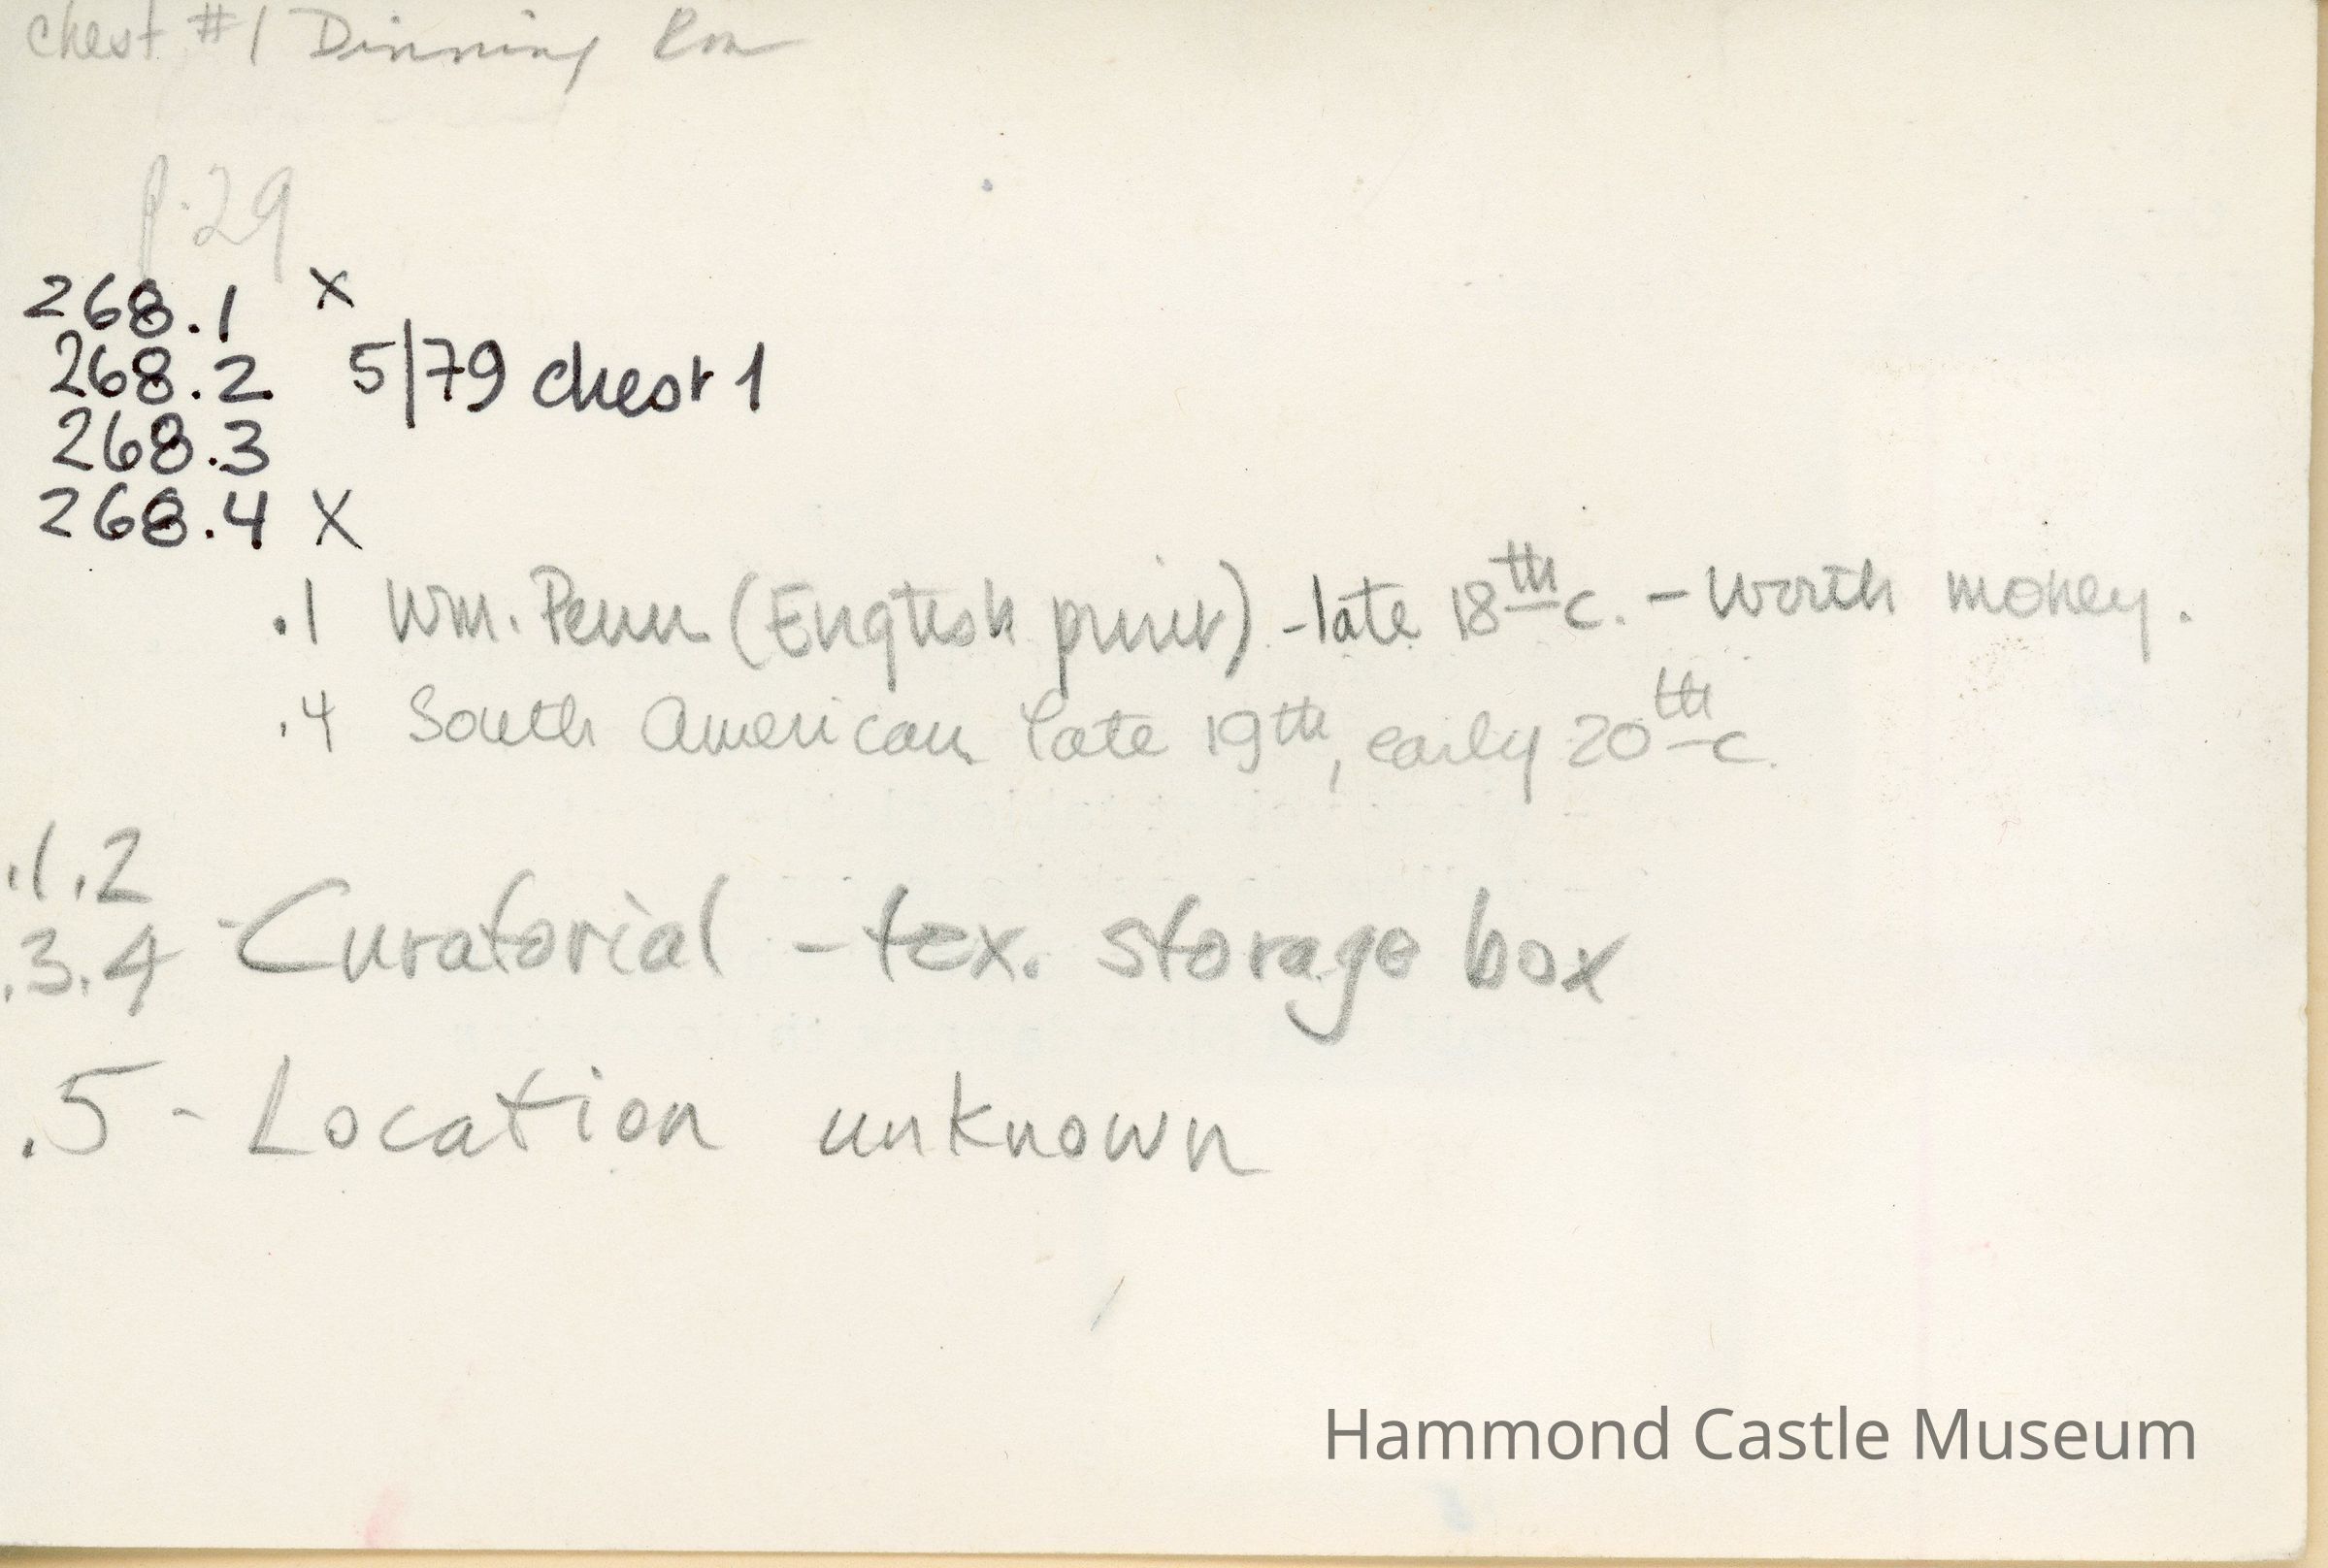 chest #1 Dinning Rm
p.29
268.1 x
268.2 5/79 chest 1
268.3
268.4 X
.1 Wm. Penn (English print) - late 18th c. - worth money.
.4 South American late 19th, early 20th c.
.1.2
.3.4 - Curatorial - tex. storage box
.5 - Location unknown
Hammond Castle Museum